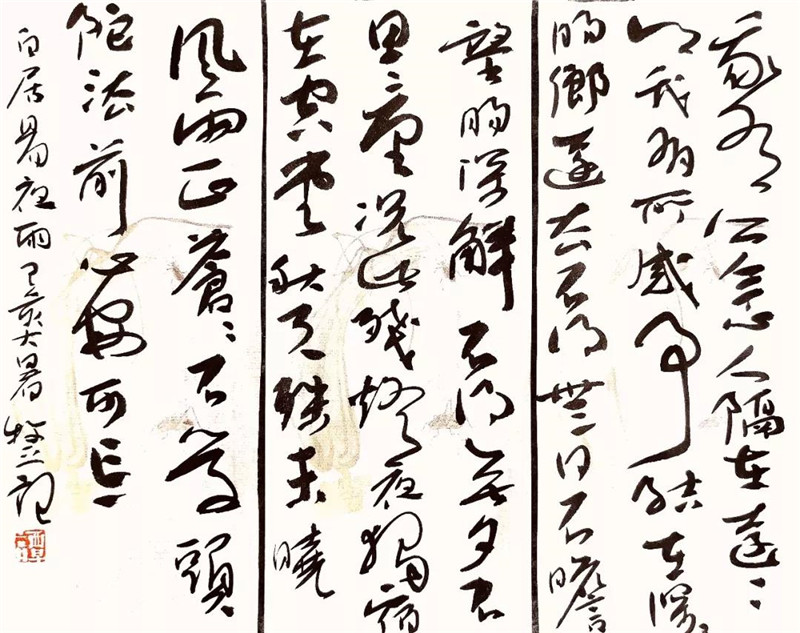 我有所念人隔在遠〻
鄉我有所感事結在深〻
腸鄉遠去不得無日不瞻
望腸深解不得無夕不
思量況此殘燈夜獨宿
在空堂秋天殊未曉
風雨正蒼〻不學頭
陀法前心安可忘
白居易夜雨己亥大暑記